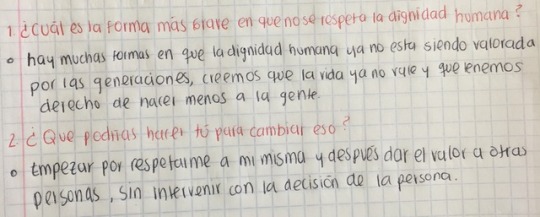 1. ¿Cuál es la forma más grave en que no se respeta la dignidad humana?
o hay muchas formas en que la dignidad humana ya no esta siendo valorada
por las generaciones, creemos que la vida ya no vale y que tenemos
derecho de hacer menos a la gente.
2. ¿Que podrias hacer tú para cambiar eso?
o Empezar por respetarme a mi misma y después dar el valor a otras
personas, sin intervenir con la decisión de la persona.